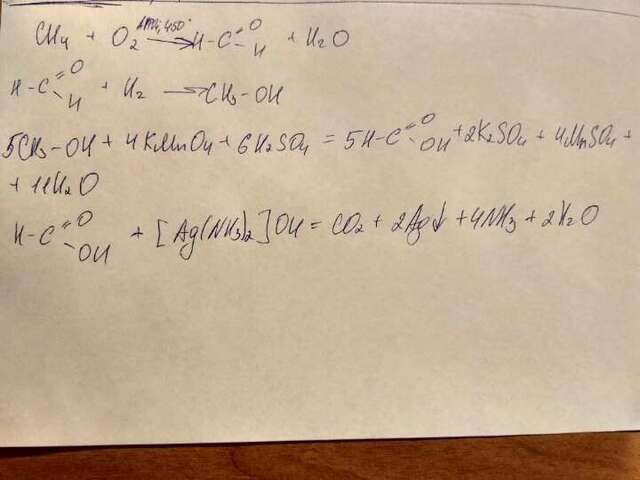 CH4 + O2 —AlPO4, 450°→ H-C(=O)-H + H2O
H-C(=O)-H + H2 → CH3-OH
5CH3-OH + 4KMnO4 + 6H2SO4 = 5H-C(=O)-OH + 2K2SO4 + 4MnSO4 +
+ 11H2O
H-C(=O)-OH + [Ag(NH3)2]OH = CO2 + 2Ag↓ + 4NH3 + 2H2O